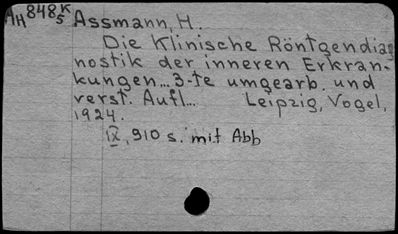 AH 848K/5 Assmann, H.
Die Klinische Röntgendiag
nostik der inneren Erkran-
kungen... 3-te umgearb. und
verst. Aufl... Leipzig, Vogel,
1924.
IX, 910 s. mit Abb